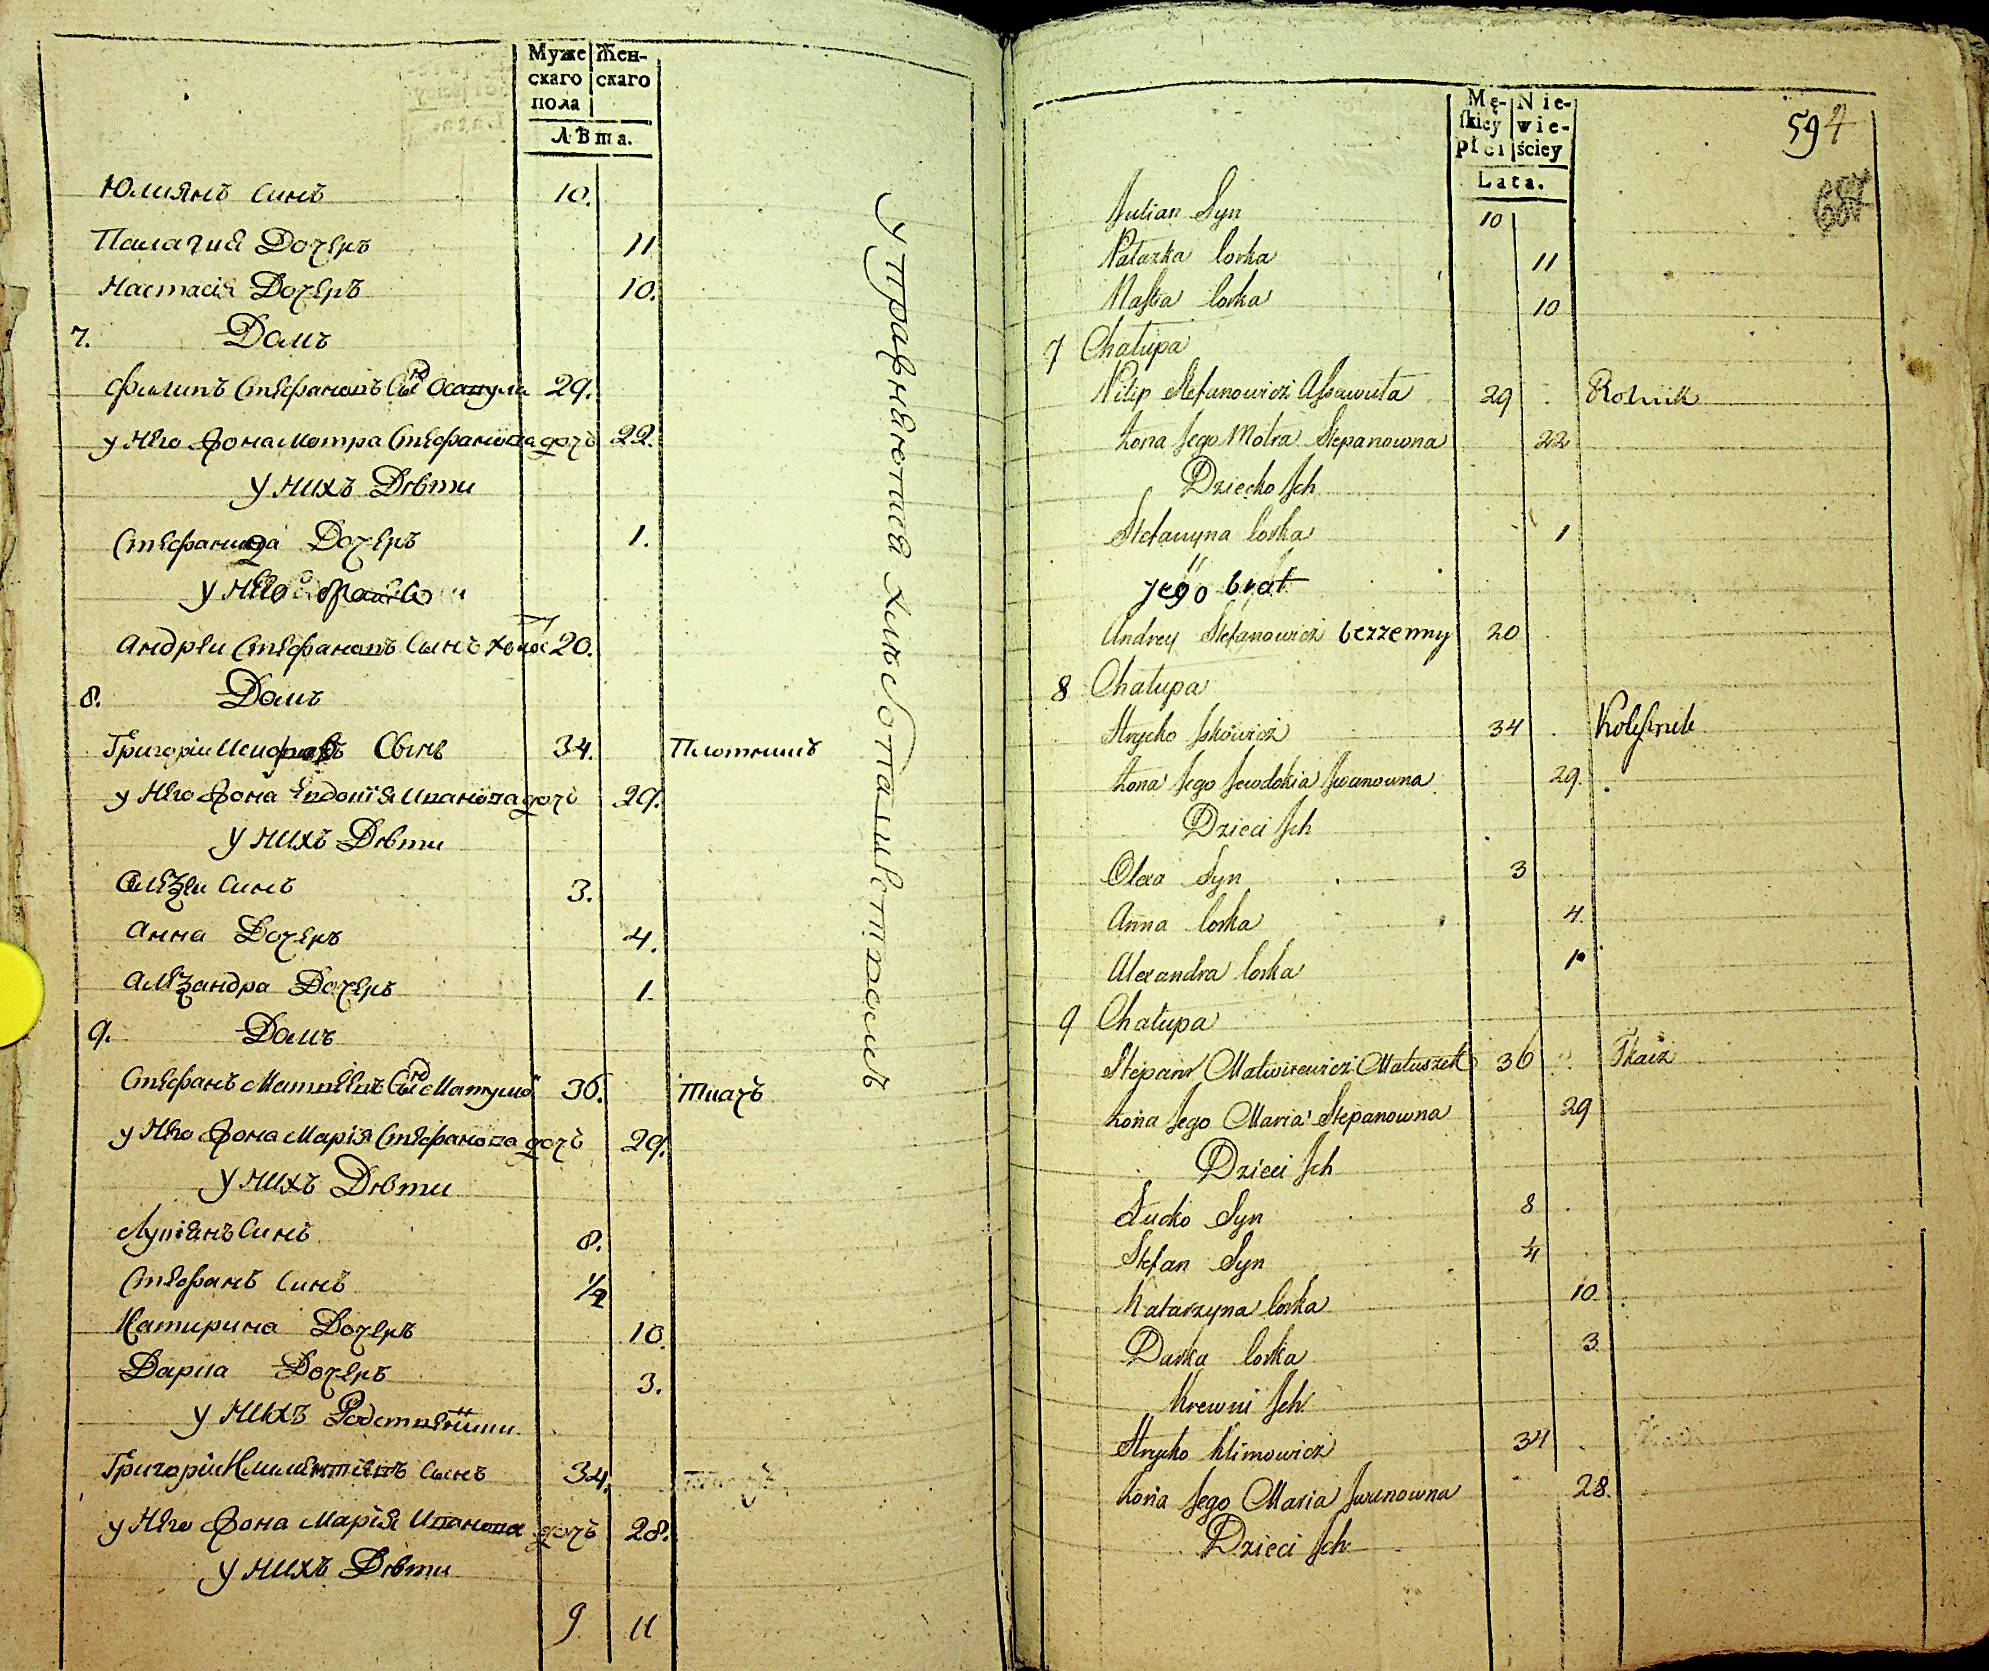 Муже Жен-
скаго скаго
пола
Лѣта.
Юлиянъ Синъ 10.
Палагия Дочеръ 11
Настасія Дочеръ 10.
7. Домъ
Филипъ Стефановъ Сынъ Осавула 29.
у Него Жона Мотра Стефанова дочь 22.
у нихъ Дѣти
Стефанида Дочеръ 1.
у Него
Андрей Стефановъ Сынъ холос 20.
8. Домъ
Григорій Сынъ 34. Плотникъ
у Него Жона Евдокія Иванова дочь 29.
у нихъ Дѣти
Алеѯей Синъ 3.
Анна Дочеръ 4.
Алеѯандра Дочеръ 1.
9. Домъ
Стефанъ Матвѣевъ Сынъ 36. Ткачъ
у Него Жона Марія Стефанова дочь 29.
у нихъ Дѣти
Лукіянъ Синъ 8.
Стефанъ Синъ
Катирина Дочеръ 10.
Дарка Дочеръ 3.
у нихъ Родственники
Григорій Климентіевъ Сынъ 34.
у Него Жона Марія Иванова дочь 28.
у нихъ Дѣти
9 11
Упражняются хлебопашествомъ
Mę- Nie-
ſkiey wie-
płci ściey
Lata.
594
Julian Syn 10
Pałazka Corka 11
Nastia Corka 10
7 Chałupa
Filip Stefanowicz Assawuła 29 Rolnik
Żona Jego Motra Stepanowna 22
Dziecko Ich
Stefanyna Corka 1
jego brat
Andrey Stefanowicz bezzenny 20
8 Chałupa
Hrycko 34
Żona Jego Jewdokia Iwanowna 29.
Dzieci Ich
Olexa Syn 3
Anna Corka 4.
Alexandra Corka 1
9 Chałupa
Stepan Matwiiewicz Matuszek 36 Tkacz
Żona Jego Maria Stepanowna 29
Dzieci Ich
Łucko Syn 8
Stefan Syn
Katarzyna Corka 10
Darka Corka 3
Krewni Ich
Hrycko Klimowicz 34
Żona Jego Maria Iwanowna 28.
Dzieci Ich